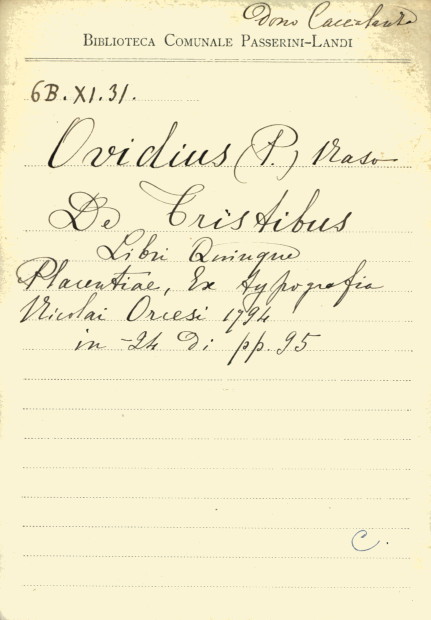 Dono Caccialanza
BIBLIOTECA COMUNALE PASSERINI-LANDI
6B.XI.31.
Ovidius (P.) Naso
De Tristibus
Libri Quinque
Placentiae, Ex typografia
Nicolai Orcesi 1794
in-24 di pp. 95
C.